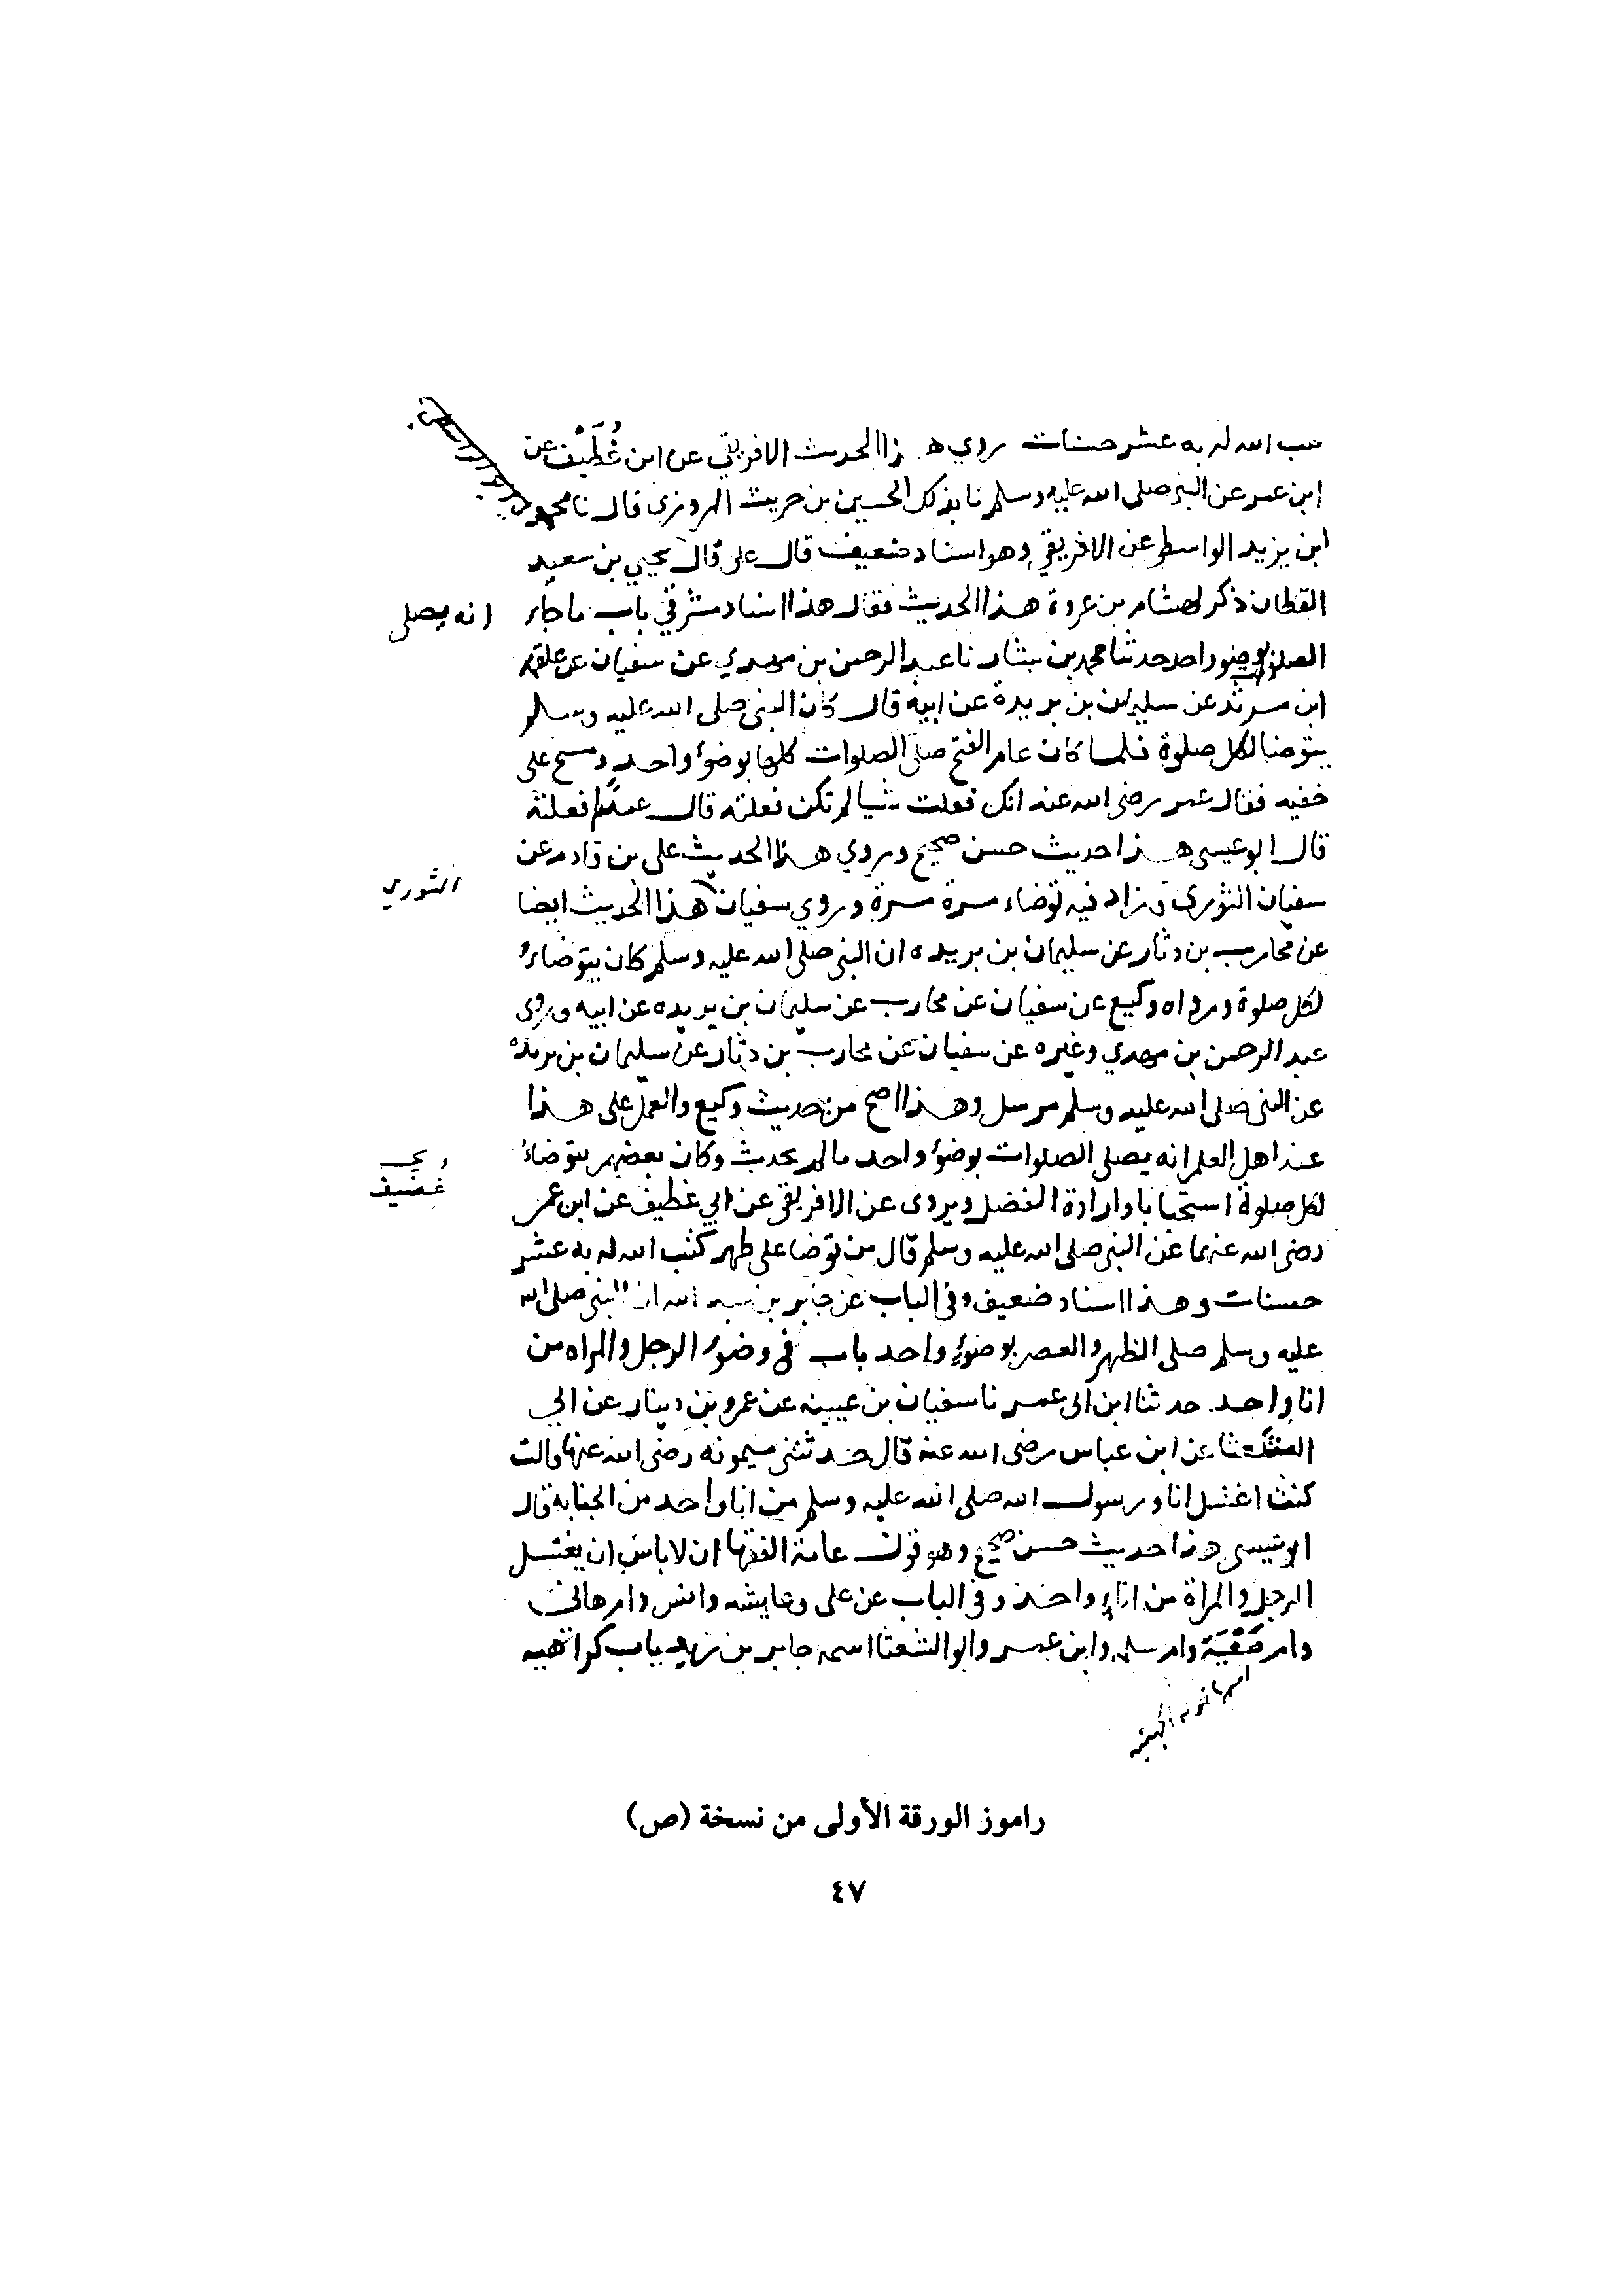 كتب الله له به عشر حسنات روي هذا الحديث الافريقي عن ابن غُطَيْف عن
ابن عمر عن النبي صلى الله عليه وسلم نا بذلك الحسين بن حريث المروزي قال نا محمد
ابن يزيد الواسطي عن الافريقي وهو اسناد ضعيف قال علي قال يحيي بن سعيد
القطان ذكر لهشام بن عروة هذا الحديث فقال هذا اسناد مشرقي باب ما جاء انه يصلي
الصلوات بوضو واحد حدثنا محمد بن بشار نا عبد الرحمن بن مهدي عن سفيان عن علقمه
ابن مرثد عن سليمن بن بريدة عن ابيه قال كان النبي صلى الله عليه وسلم
يتوضا لكل صلوة فلما كان عام الفتح صلى الصلوات كلها بوضوء واحد ومسح على
خفيه فقال عمر رضي الله عنه انك فعلت شيا لم تكن فعلته قال عمدًا فعلته
قال ابو عيسى هذا حديث حسن صحيح وروي هذا الحديث علي بن قادم عن
سفيان الثوري وزاد فيه توضاء مرة مرة وروي سفيان هذا الحديث ايضا
الثوري
عن محارب بن دثار عن سليمان بن بريده ان النبي صلى الله عليه وسلم كان يتوضاء
لكل صلوة ورواه وكيع عن سفيان عن محارب عن سليمان بن بريده عن ابيه وروى
عبد الرحمن بن مهدي وغيره عن سفيان عن محارب بن دثار عن سليمان بن بريده
عن النبي صلى الله عليه وسلم مرسل وهذا اصح من حديث وكيع والعمل على هذا
عند اهل العلم انه يصلي الصلوات بوضوء واحد ما لم يحدث وكان بعضهم يتوضاء
لكل صلوة استحبابا وارادة الفضل ويروى عن الافريقي عن ابي غطيف عن ابن عمر
غضيف
رضي الله عنهما عن النبي صلى الله عليه وسلم قال من توضا على طهر كتب الله له به عشر
حسنات وهذا اسناد ضعيف وفي الباب عن جابر بن عبد الله ان النبي صلى الله
عليه وسلم صلى الظهر والعصر بوضوء واحد باب في وضوء الرجل والمراه من
انا واحد حدثنا ابن ابي عمر نا سفيان بن عيينه عن عمرو بن دينار عن ابي
الشعثا عن ابن عباس رضي الله عنه قال حدثتني ميمونه رضي الله عنها قالت
كنت اغتسل انا ورسول الله صلى الله عليه وسلم من انا واحد من الجنابه قال
ابو عيسى هذا حديث حسن صحيح وهو قول عامة الفقها ان لا باس ان يغتسل
الرجل والمراة من اناء واحد وفي الباب عن علي وعايشه وانس وام هاني
وام صُبَيَّة وام سلمه وابن عمر وابو الشعثا اسمه جابر بن زيد باب كراهيه
اسمها خوله الجهنيه
راموز الورقة الأولى من نسخة (ص)
٤٧